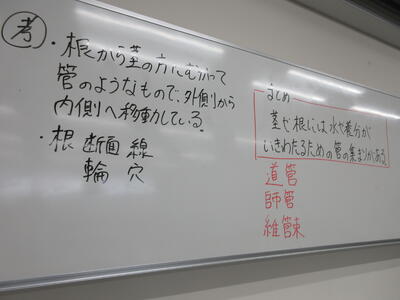 考
・根から茎の方にむかって
管のようなもので、外側から
内側へ移動している。
・根 断面 線
輪 穴
まとめ
茎や根には水や養分が
いきわたるための管の集まりがある
道管
師管
維管束